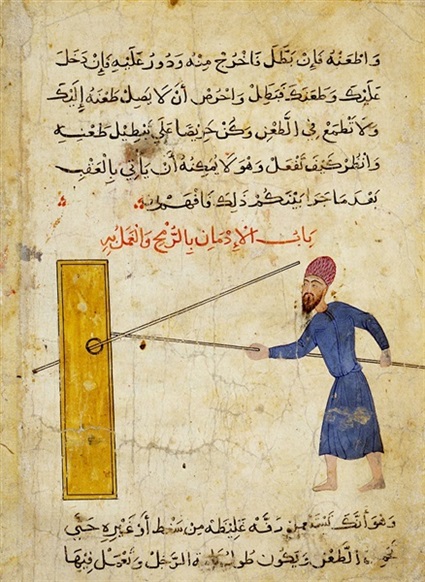 واطعنه فإن بطل فاخرج منه ودور عليه فإن دخل
عليك وطعنك فبطل واحرص أن لا يصل طعنه إليك
ولا تطمع في الطعن وكن حريصا على تبطيل طعنه
وانظر كيف تفعل وهو لا يمكنه أن يأتي بالعقب
بعد ما جرا بينكم ذلك وافهم
باب الإدمان بالرمح والعمل به
وهو أنك تستعمل دفه غليظه من سنط أو غيره حتى
الطعن ويكون طول الرجل وتعمل فيها